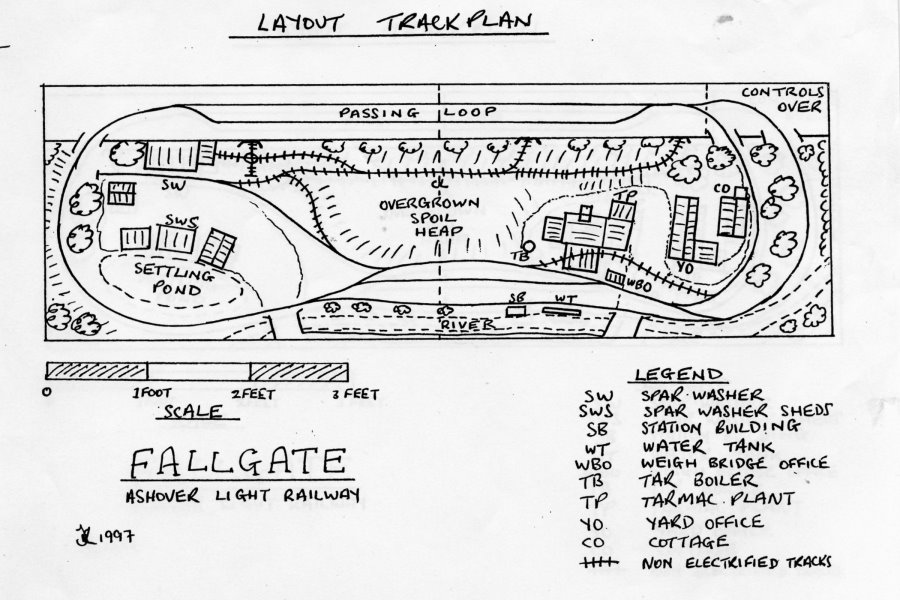 LAYOUT TRACKPLAN
CONTROLS
OVER
PASSING LOOP
SW
OVERGROWN
SPOIL
HEAP
TP
CO
SWS
TB
YO
WBO
SETTLING
POND
SB WT
RIVER
0 1FOOT 2FEET 3 FEET
SCALE
FALLGATE
ASHOVER LIGHT RAILWAY
1997
LEGEND
SW SPAR WASHER
SWS SPAR WASHER SHEDS
SB STATION BUILDING
WT WATER TANK
WBO WEIGH BRIDGE OFFICE
TB TAR BOILER
TP TARMAC PLANT
YO YARD OFFICE
CO COTTAGE
NON ELECTRIFIED TRACKS